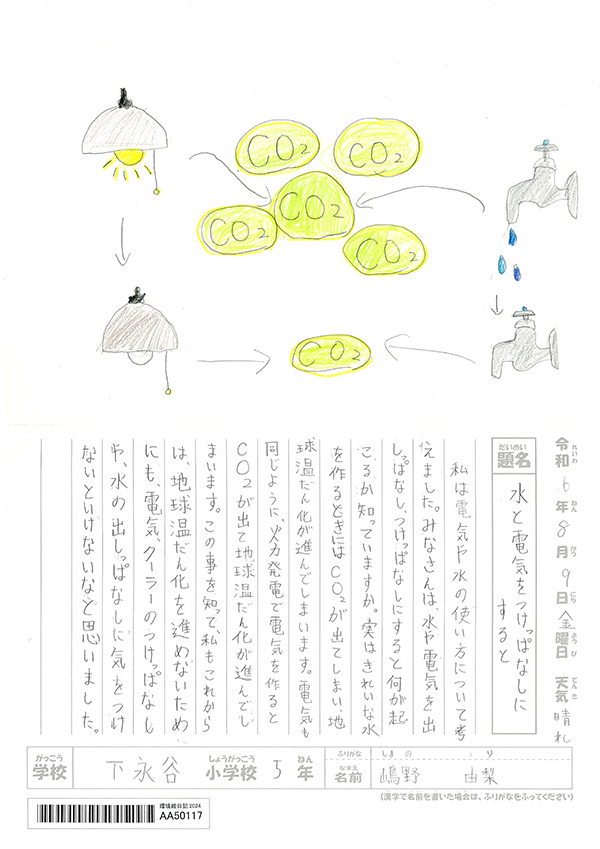 CO2
CO2
CO2
CO2
CO2
CO2
令和6年8月9日金曜日 天気 晴れ
れいわ ねん がつ にち ようび てんき
だいめい
題名
水と電気をつけっぱなしに
すると
私は電気や水の使い方について考
えました。みなさんは、水や電気を出
しっぱなし、つけっぱなしにすると何が起
こるか知っていますか。実はきれいな水
を作るときにはCO2が出てしまい、地
球温だん化が進んでしまいます。電気も
同じように、火力発電で電気を作ると
CO2が出て地球温だん化が進んでし
まいます。この事を知って、私もこれから
は、地球温だん化を進めないため
にも、電気、クーラーのつけっぱなし
や、水の出しっぱなしに気をつけ
ないといけないなと思いました。
がっこう しょうがっこう ねん
学校 下永谷 小学校 5年
ふりがな しまの ゆり
なまえ
名前 嶋野 由梨
(漢字で名前を書いた場合は、ふりがなをふってください)
環境絵日記2024
AA50117